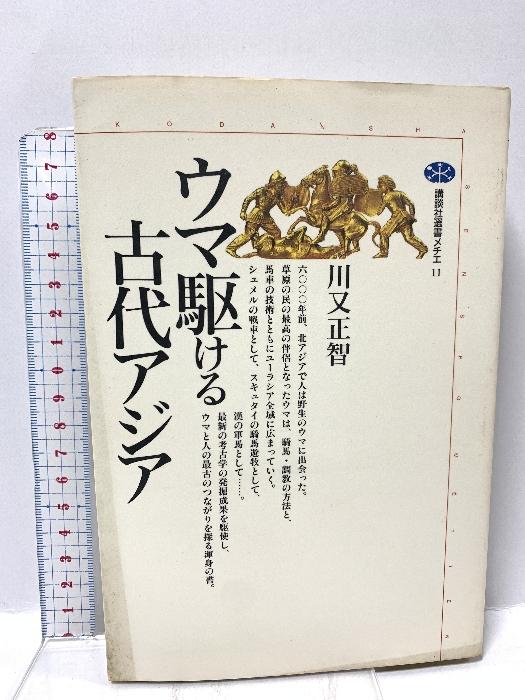 KODANSHA
SENSHO METIER
講談社選書メチエ 11
ウマ駆ける
古代アジア
川又正智
六〇〇〇年前、北アジアで人は野生のウマに出会った。
草原の民の最高の伴侶となったウマは、騎馬・調教の方法と、
馬車の技術とともにユーラシア全域に広まっていく。
シュメルの戦車として、スキュタイの騎馬遊牧として、
漢の軍馬として……。
最新の考古学の発掘成果を駆使し、
ウマと人の最古のつながりを探る渾身の書。
8
7
6
5
4
3
2
1
0
1
2
3
4
5
6
7
8